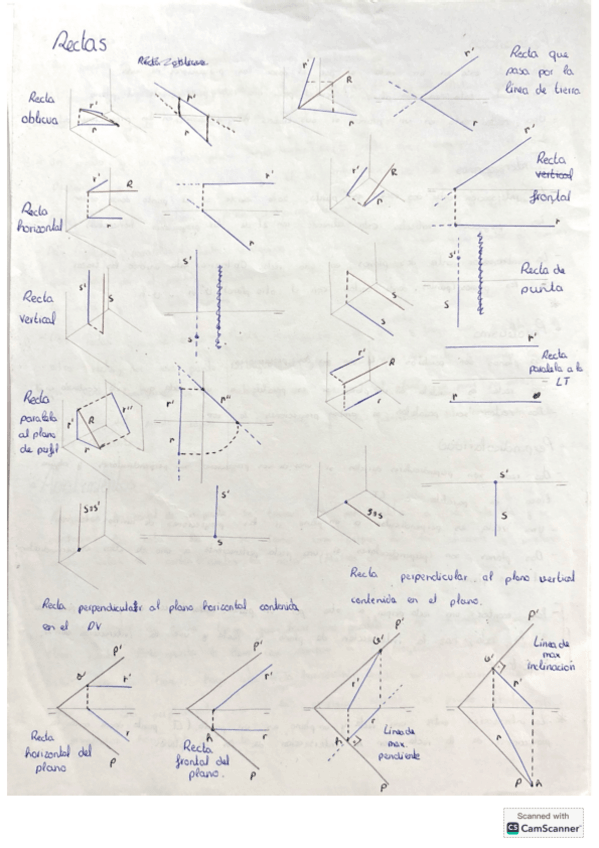 Rectas
Recta oblicua
Recta
oblicua
r'
r
r'
r
r'
R
r
r'
r
Recta que
pasa por la
línea de tierra
Recta
horizontal
r'
R
r
r'
r
r'
R
r
r'
r
Recta
vertical
frontal
Recta
vertical
s'
s
s'
s
s
s
s'
s
Recta de
punta
Recta
paralela
al plano
de perfil
r'
R
r''
r
r'
r''
r
r'
R
r
r'
r
Recta
paralela a la
LT
s≡s'
s'
s
s≡s
s'
s
Recta perpendicular al plano horizontal contenida
en el PV
Recta perpendicular al plano vertical
contenida en el plano.
P'
r'
r
P
Recta
horizontal del
plano
P'
r'
A
r
P
Recta
frontal del
plano.
P'
r'
r
A
P
Línea de
max
pendiente
P'
r'
P
A
Línea de
max
inclinación
Scanned with
CS CamScanner